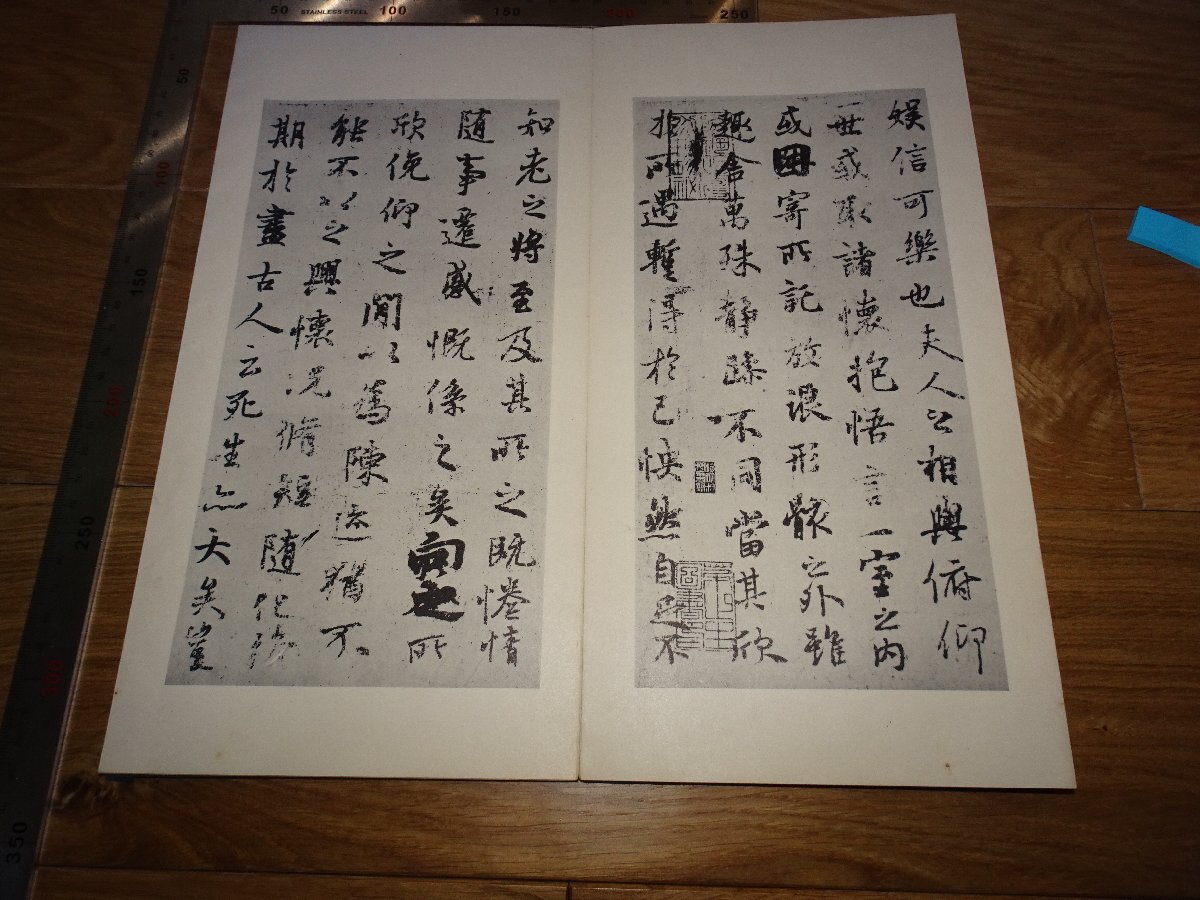 50 STAINLESS-STEEL 100 150 200 250
50 100 150 200 250 300 350
娱信可樂也夫人之相與俯仰
一世或取諸懷抱悟言一室之内
或因寄所託放浪形骸之外雖
趣舍萬殊静躁不同當其欣
於所遇蹔得於己怏然自足不
知老之將至及其所之既惓情
随事遷感慨係之矣向之所
欣俛仰之閒以爲陳迹猶不
能不以之興懷况脩短随化終
期於盡古人云死生亦大矣豈